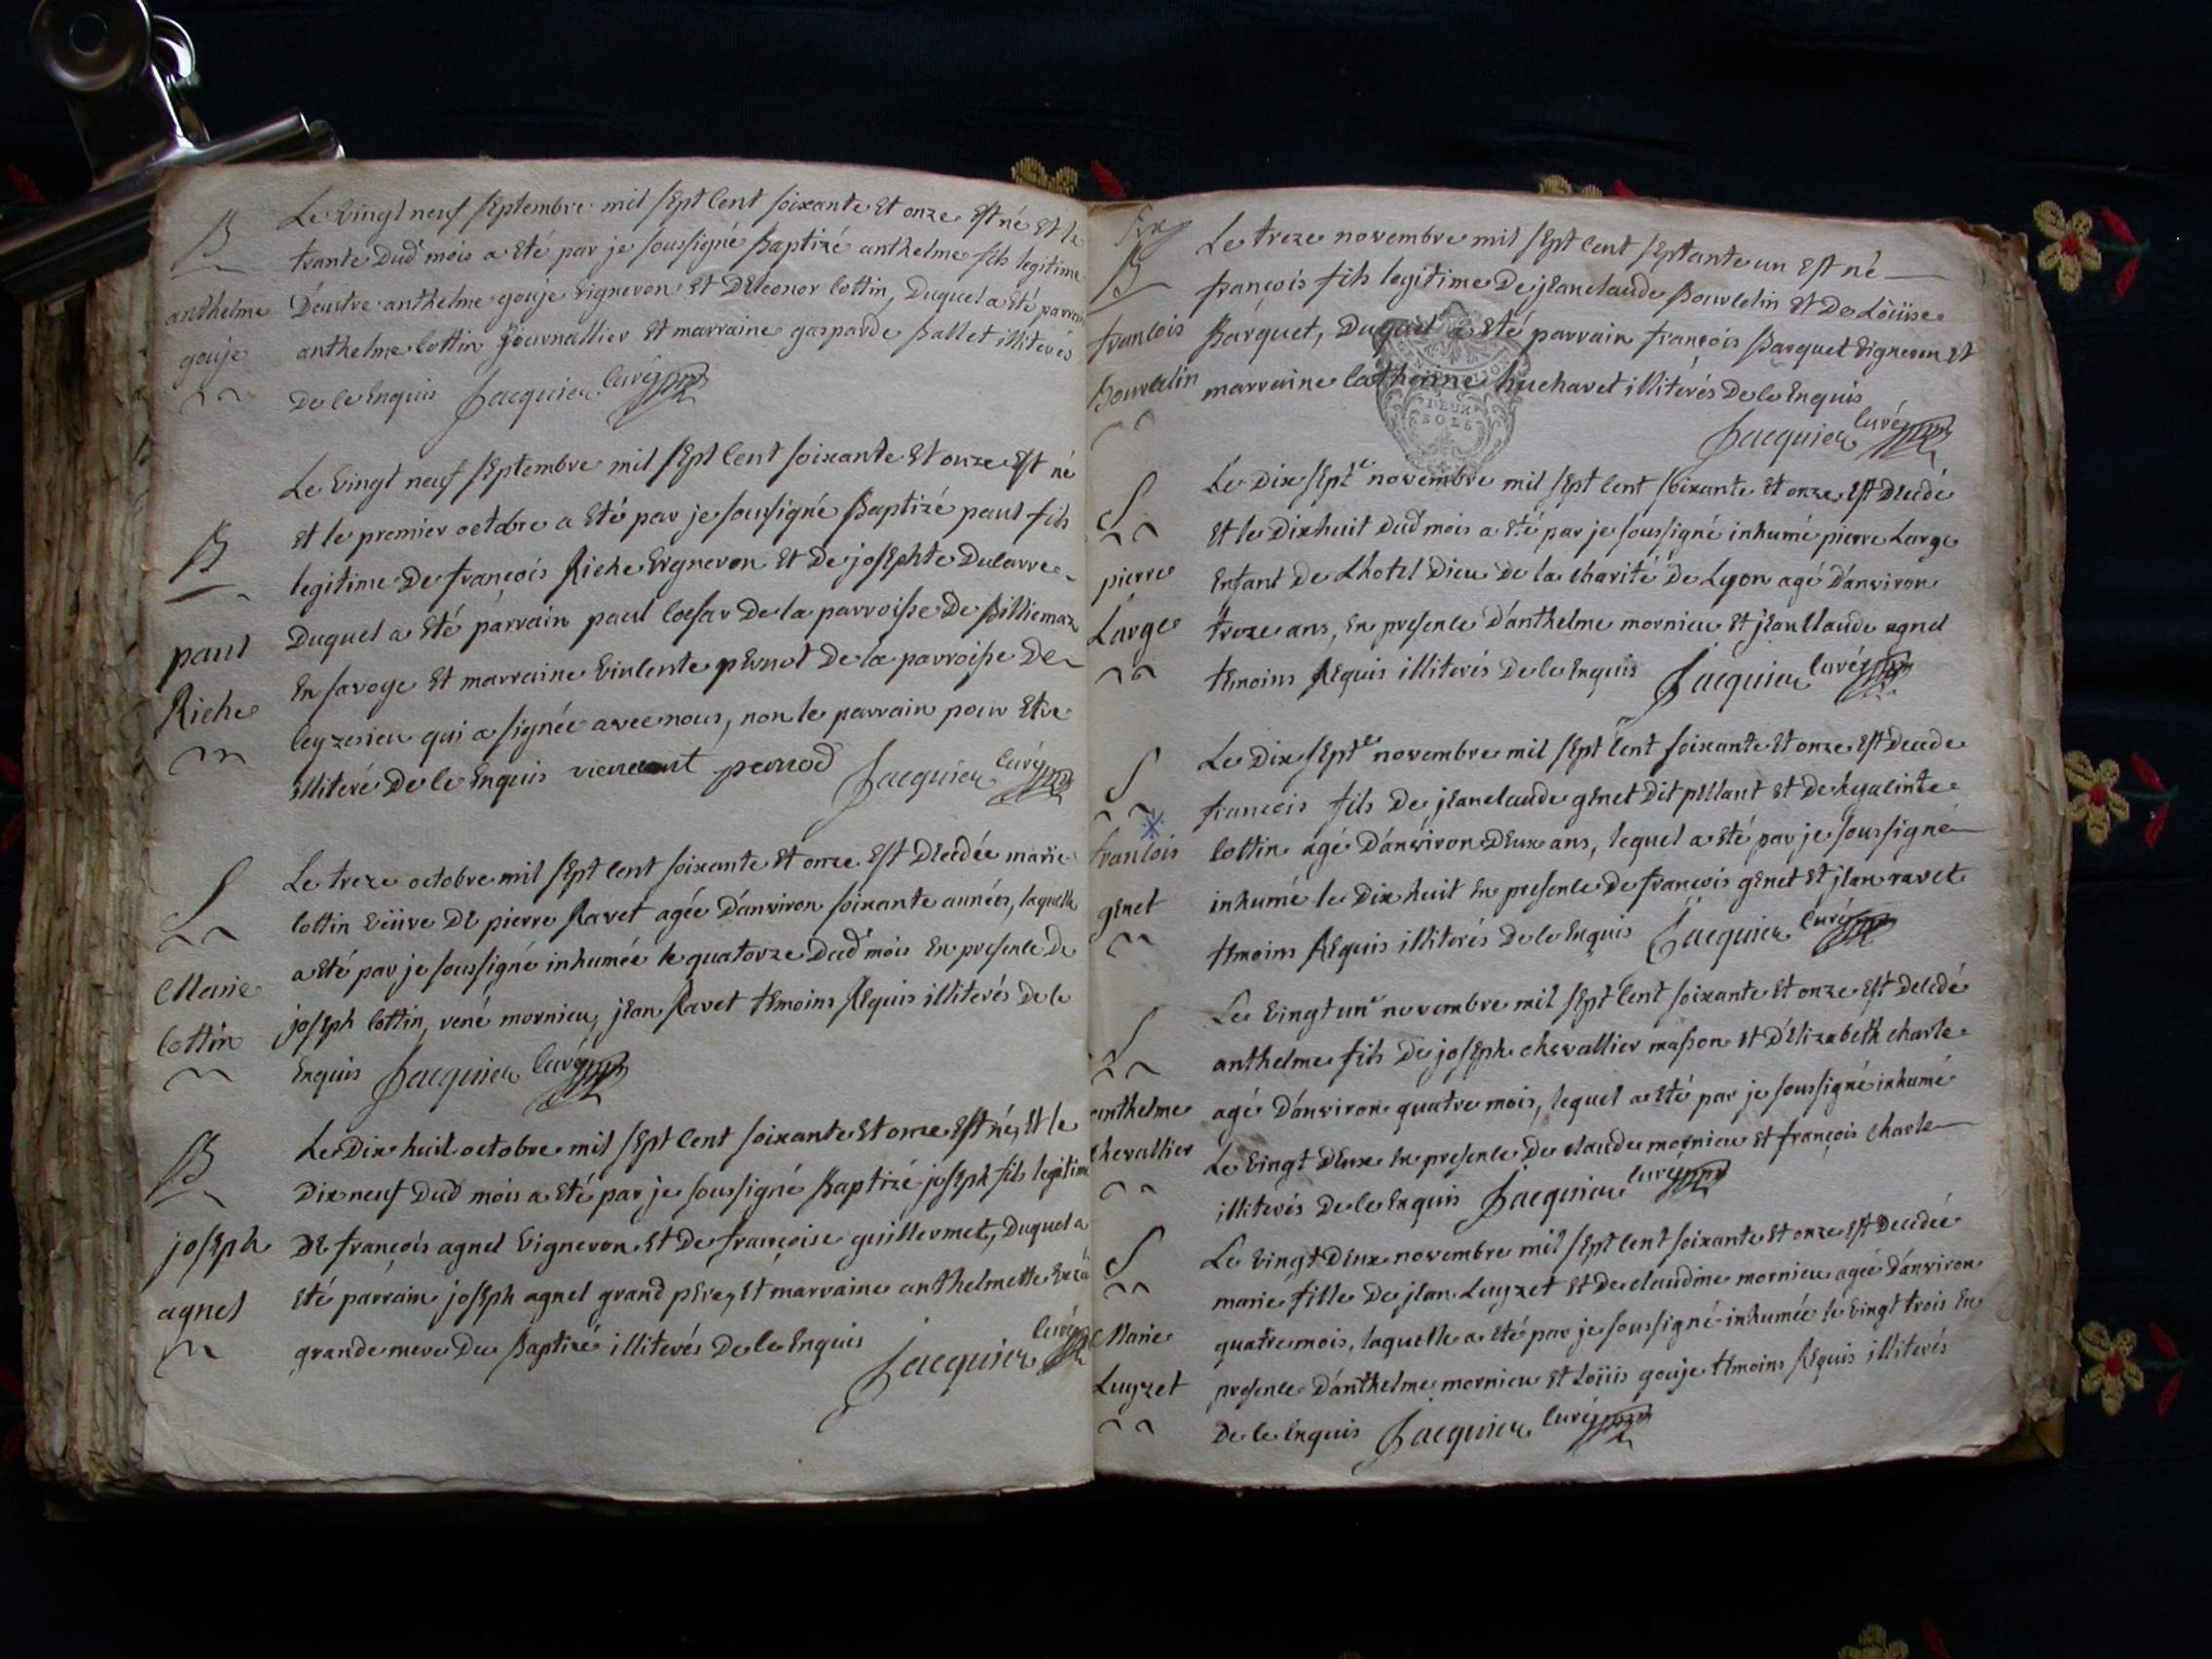 B
anthelme
gouje
Le vingt neuf septembre mil sept cent soixante et onze est né et le
trante dud mois a eté par je soussigné Baptizé anthelme fils legitime
d'autre anthelme gouje vigneron et d'Eleonor cottin, duquel a eté parrain
anthelme cottin journallier et marraine gasparde Ballet illiterés
de ce enquis Jacquier curé
B
paul
Riche
Le vingt neuf septembre mil sept cent soixante et onze est né
et le premier octobre a eté par je soussigné Baptizé paul fils
legitime de françois Riche vigneron et de josephte Delarve
duquel a eté parrain paul Coesar de la parroisse de Billiemaz
en savoye et marraine vincente pernot de la parroisse de
ceyzerieu qui a signée avec nous, non le parrain pour etre
illiteré de ce enquis pernod Jacquier curé
S
Marie
cottin
Le treze octobre mil sept cent soixante et onze est decedée marie
cottin veüve de pierre Ravet agée d'anviron soixante années, laquelle
a eté par je soussigné inhumée le quatorze dud mois en presence de
joseph cottin, rené mornieu, jean Ravet temoins Requis illiterés de ce
enquis Jacquier curé
B
joseph
agnel
Le dix huit octobre mil sept cent soixante et onze est né, et le
dix neuf dud mois a eté par je soussigné Baptizé joseph fils legitime
de françois agnel vigneron et de françoise guillermet, duquel a
eté parrain joseph agnel grand pere, et marraine anthelmette
grande mere du Baptizé illiterés de ce enquis
Jacquier curé
B
francois
Bourdelin
Le treze novembre mil sept cent septante un est né
françois fils legitime de jeanclaude Bourdelin et de Loüise
Barquet, duquel a eté parrain françois Barquet vigneron et
marraine catherine huchavet illiterés de ce enquis
Jacquier curé
DEUX
SOLS
S
pierre
Large
Le dix septe novembre mil sept cent soixante et onze est decedé
et le dix huit dud mois a eté par je soussigné inhumé pierre Large
enfant de Lhotel Dieu de la charité de Lyon agé d'anviron
treze ans, en presence d'anthelme mornieu et jean Claude agnel
temoins Requis illiterés de ce enquis Jacquier curé
S
francois
genet
Le dix septe novembre mil sept cent soixante et onze est decedé
francois fils de jeanclaude genet dit pellant et de hyacinte
cottin agé d'anviron deux ans, lequel a eté par je soussigné
inhumé le dix huit en presence de françois genet et jean ravet
temoins Requis illiterés de ce enquis Jacquier curé
S
anthelme
chevallier
Le vingt une novembre mil sept cent soixante et onze est decedé
anthelme fils de joseph chevallier masson et d'Elizabeth charle
agé d'anviron quatre mois, lequel a eté par je soussigné inhumé
Le vingt deux en presence de claude mornieu et françois charle
illiterés de ce enquis Jacquier curé
S
Marie
Luyzet
Le vingt deux novembre mil sept cent soixante et onze est decedée
marie fille de jean Luyzet et de claudine mornieu agée d'anviron
quatre mois, laquelle a eté par je soussigné inhumée le vingt trois en
presence d'anthelme mornieu et Loüis gouje temoins Requis illiterés
de ce enquis Jacquier curé